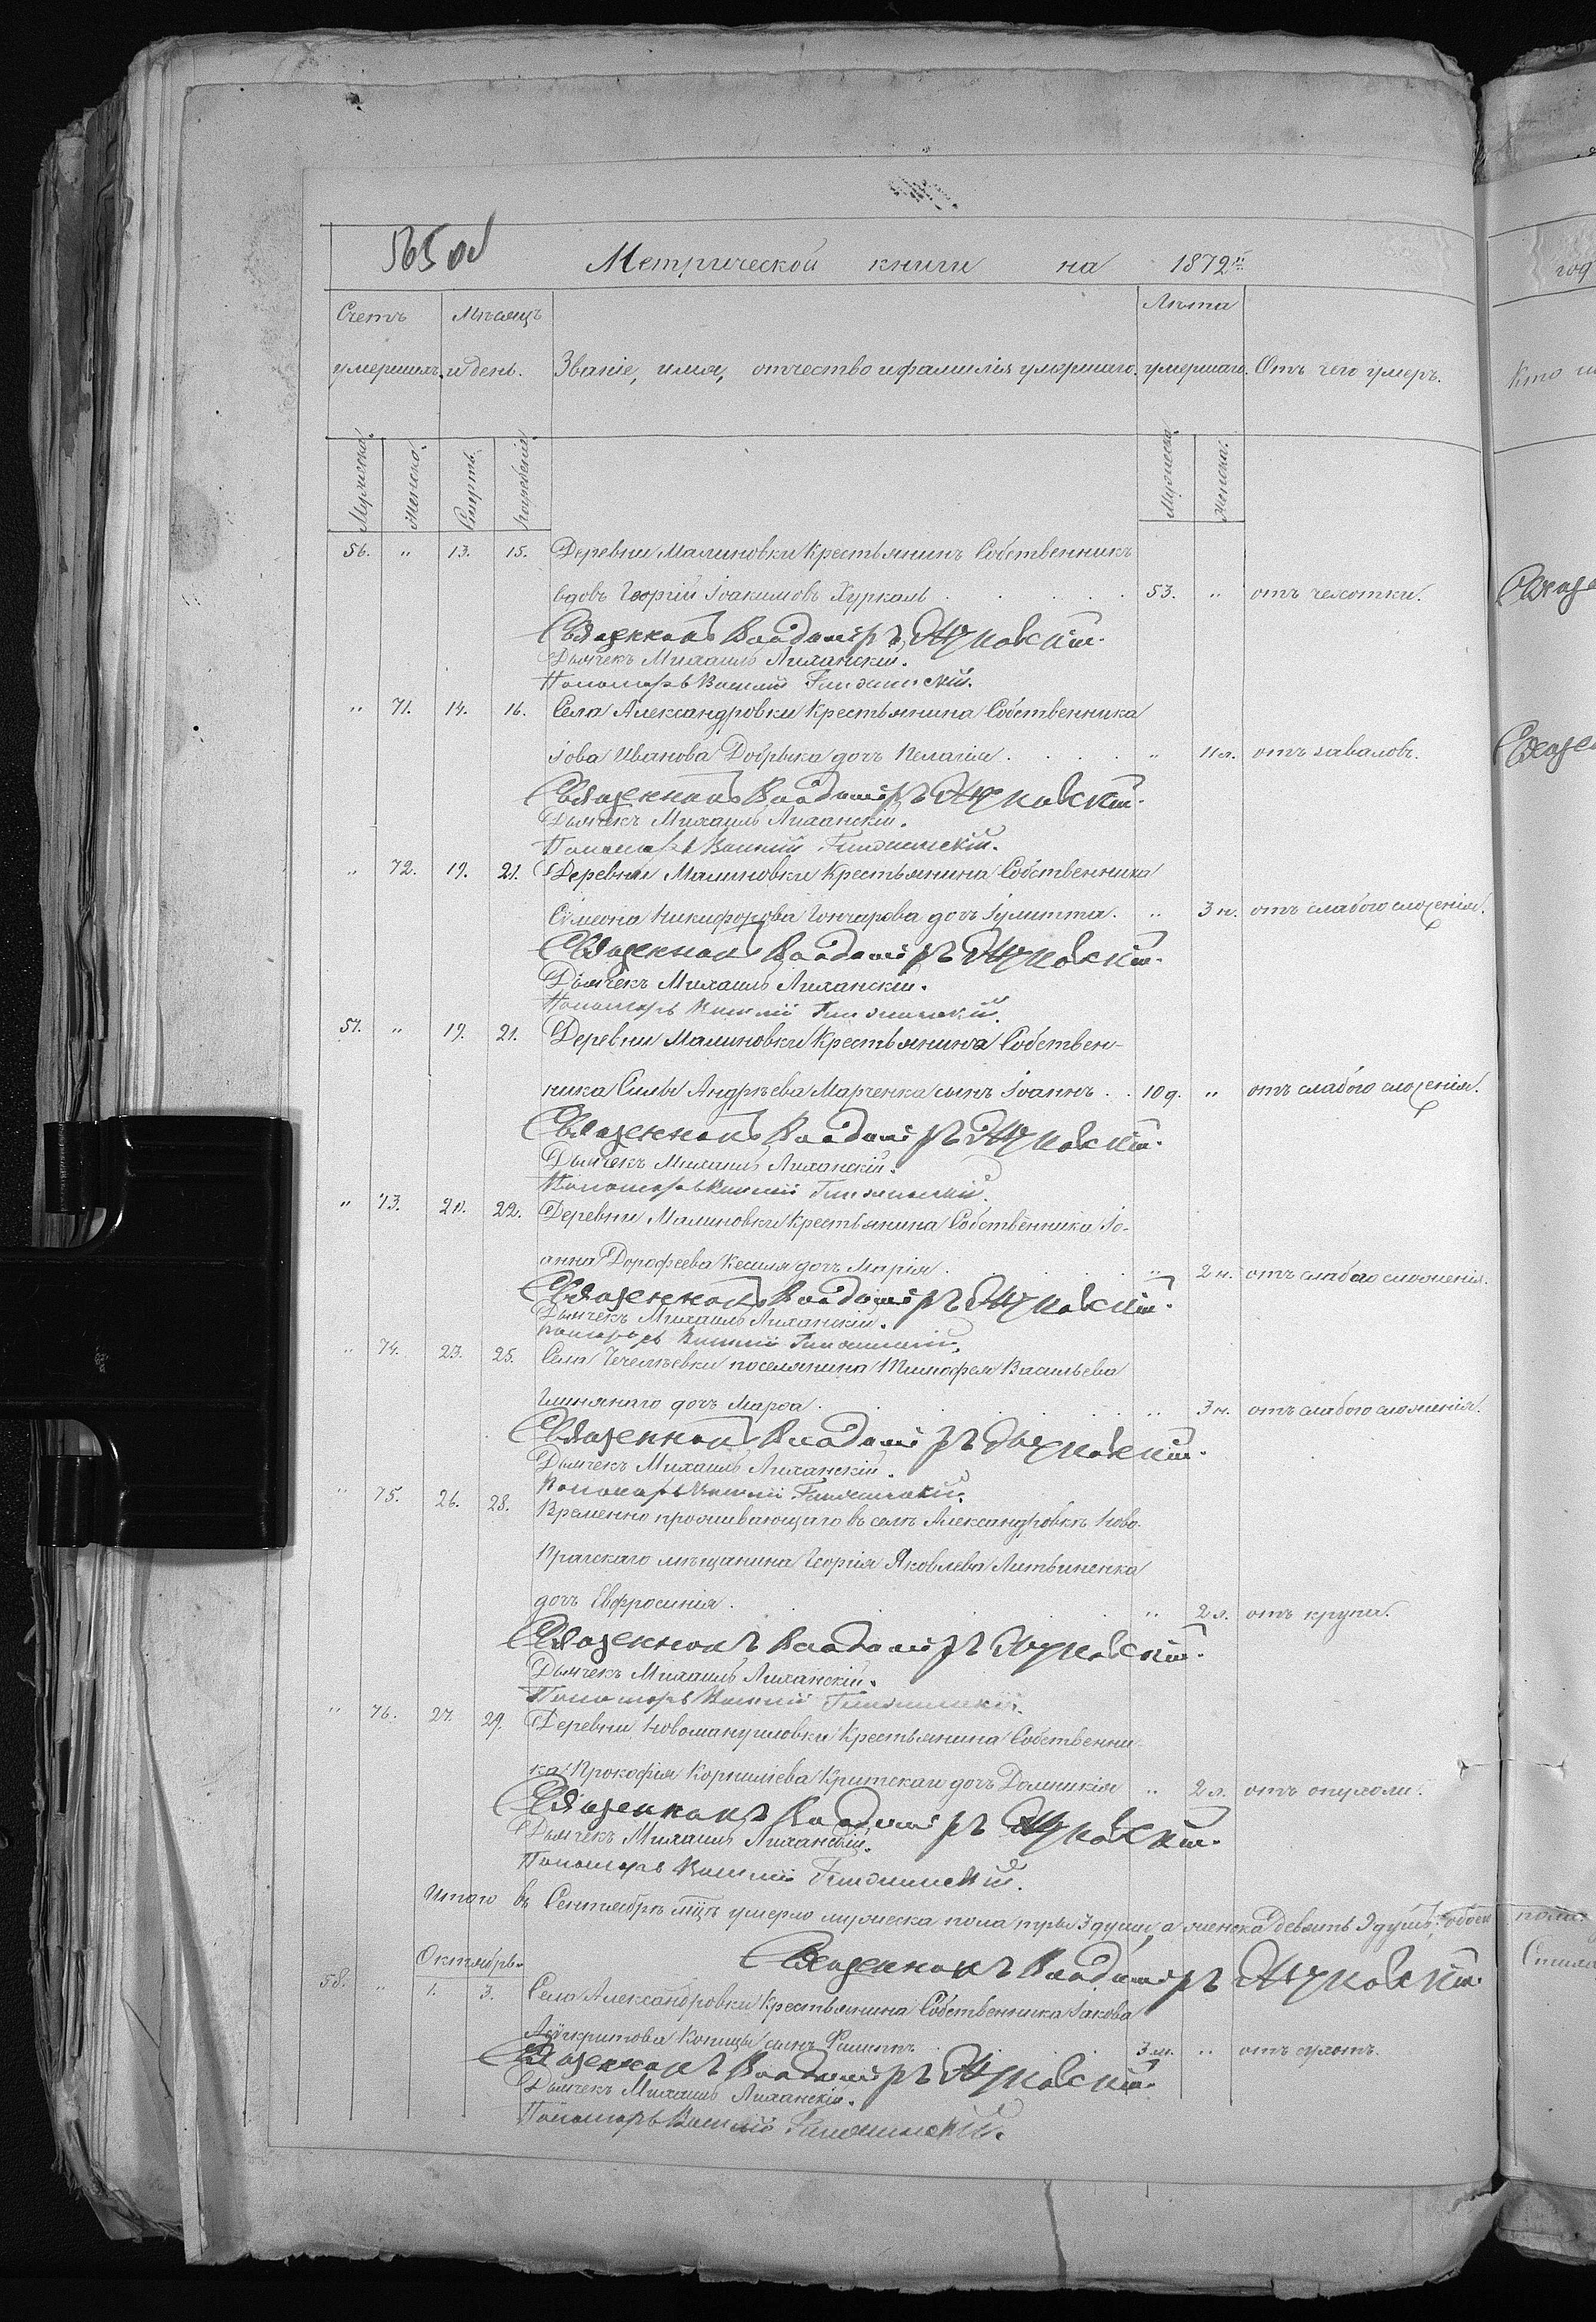 565 об
Метрической книги на 1872й год
Счетъ умершихъ. Мѣсяцъ и день. Званіе, имя, отчество и фамилія умершаго. Лѣта умершаго. Отъ чего умеръ. Кто
Мужеска. Женска. Смерть. погребенія. Мужеска. Женска.
56. " 13. 15. Деревни Малиновки Крестьянинъ Собственникъ
вдовъ Георгій Іоакимовъ Хуркаль . . . . 53. " отъ чахотки.
Священникъ Владиміръ Жуковскій.
Дьячекъ Михаилъ Лиханскій.
Пономарь Василій
" 71. 14. 16. Села Александровки Крестьянина Собственника
Іова Иванова Добрыка дочь Пелагія . . . . " 11л. отъ заваловъ.
Священникъ Владиміръ Жуковскій.
Дьячекъ Михаилъ Лиханскій.
Пономарь Василій
" 72. 19. 21. Деревни Малиновки Крестьянина Собственника
Сѵмеона Никифорова Гончарова дочь Іулитта. " 3 н. отъ слабого сложенія.
Священникъ Владиміръ Жуковскій.
Дьячекъ Михаилъ Лиханскій.
Пономарь Василій
57. " 19. 21. Деревни Малиновки Крестьянина Собствен-
ника Силы Андрѣева Марченка сынъ Іоаннъ . . 10 д. " отъ слабого сложенія.
Священникъ Владиміръ Жуковскій.
Дьячекъ Михаилъ Лиханскій.
Пономарь Василій
" 73. 20. 22. Деревни Малиновки Крестьянина Собственника Іо-
анна Дорофеева дочь Марія . . . . " 2 н. отъ слабого сложенія.
Священникъ Владиміръ Жуковскій.
Дьячекъ Михаилъ Лиханскій.
Пономарь Василій
" 74. 23. 25. Села поселянина Тимофея Васильева
Глинянаго дочь Марѳа . . . . " 3 н. отъ слабого сложенія.
Священникъ Владиміръ Жуковскій.
Дьячекъ Михаилъ Лиханскій.
Пономарь Василій
" 75. 26. 28. Временно проживающаго въ селѣ Александровкѣ Ново-
Прагскаго мѣщанина Георгія Яковлева Литвиненка
дочь Евфросинія . . . . " 2 л. отъ крупа.
Священникъ Владиміръ Жуковскій.
Дьячекъ Михаилъ Лиханскій.
Пономарь Василій
" 76. 27. 29. Деревни Новомануиловки Крестьянина Собственни-
ка Прокофія Корниліева дочь Домникія " 2 л. отъ опухоли.
Священникъ Владиміръ Жуковскій.
Дьячекъ Михаилъ Лиханскій.
Пономарь Василій
Итого въ Сентябрѣ мцѣ умерло мужеска пола три 3 души, а женска девять 9 душъ, обоего пола
Священникъ Владиміръ Жуковскій
Октябрь.
58. " 1. 3. Села Александровки Крестьянина Собственника Іакова
сынъ Филиппъ . . . 3 м. " отъ сухотъ.
Священникъ Владиміръ Жуковскій.
Дьячекъ Михаилъ Лиханскій.
Пономарь Василій